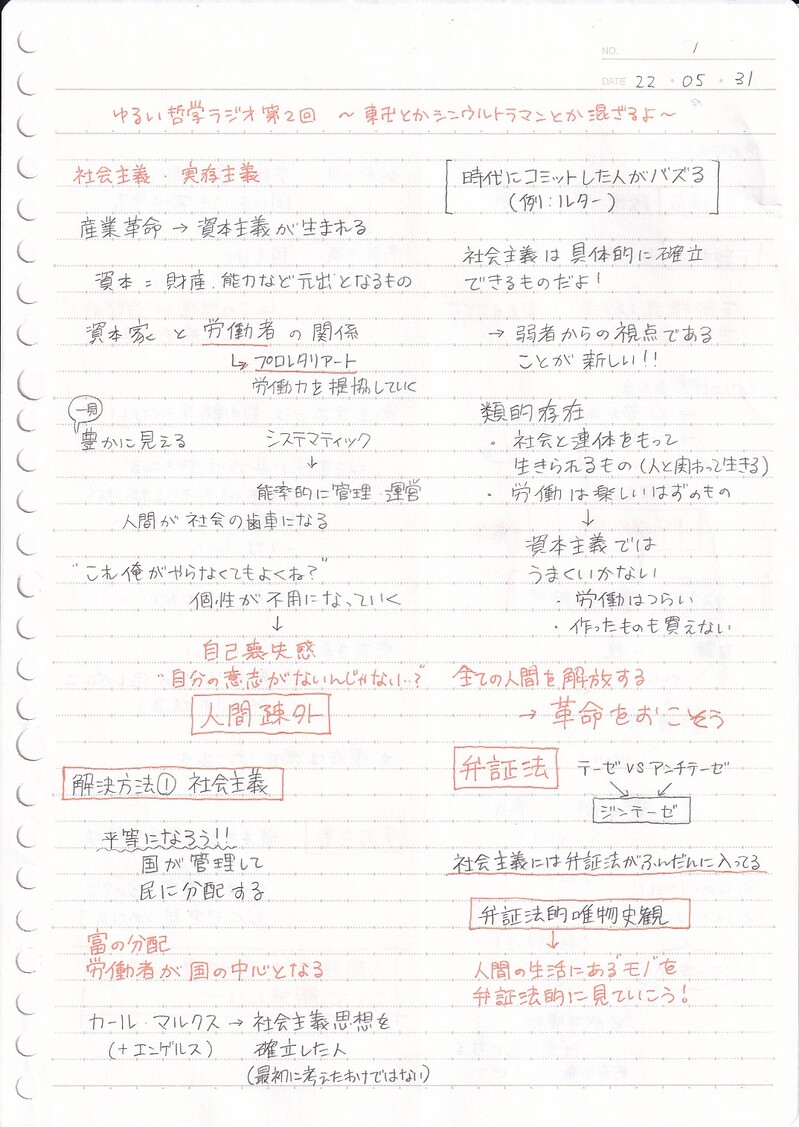 NO. 1
DATE 22・05・31
ゆるい哲学ラジオ第2回 〜東卍とかシンウルトラマンとか混ざるよ〜
社会主義・実存主義
産業革命 → 資本主義が生まれる
資本 = 財産、能力など元出となるもの
資本家 と 労働者 の関係
↳ プロレタリアート
労働力を提協していく
一見
豊かに見える
システマティック
↓
能率的に管理・運営
人間が社会の歯車になる
"これ俺がやらなくてもよくね?"
個性が不用になっていく
↓
自己喪失感
"自分の意志がないんじゃない…?"
人間疎外
解決方法① 社会主義
平等になろう!!
国が管理して
民に分配する
富の分配
労働者が国の中心となる
カール・マルクス → 社会主義思想を
(+エンゲルス) 確立した人
(最初に考えたわけではない)
時代にコミットした人がバズる
(例:ルター)
社会主義は具体的に確立
できるものだよ!
→ 弱者からの視点である
ことが新しい!!
類的存在
・社会と連体をもって
生きられるもの(人と関わって生きる)
・労働は楽しいはずのもの
↓
資本主義では
うまくいかない
・労働はつらい
・作ったものも買えない
全ての人間を解放する
→ 革命をおこそう
弁証法 テーゼ VS アンチテーゼ
ジンテーゼ
社会主義には弁証法がふんだんに入ってる
弁証法的唯物史観
↓
人間の生活にある"モノ"を
弁証法的に見ていこう!